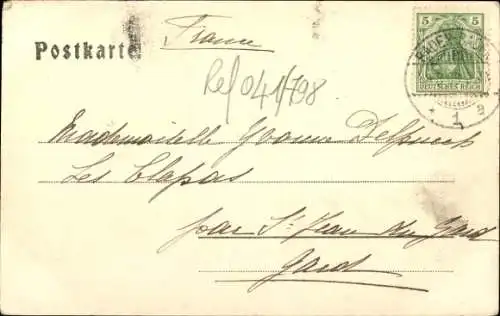 Postkarte
France
5 5
DEUTSCHES REICH
BADEN
1
a
Ref 041/798
Mademoiselle Yvonne Delpuech
Les Clapas
par St Jean du Gard
Gard